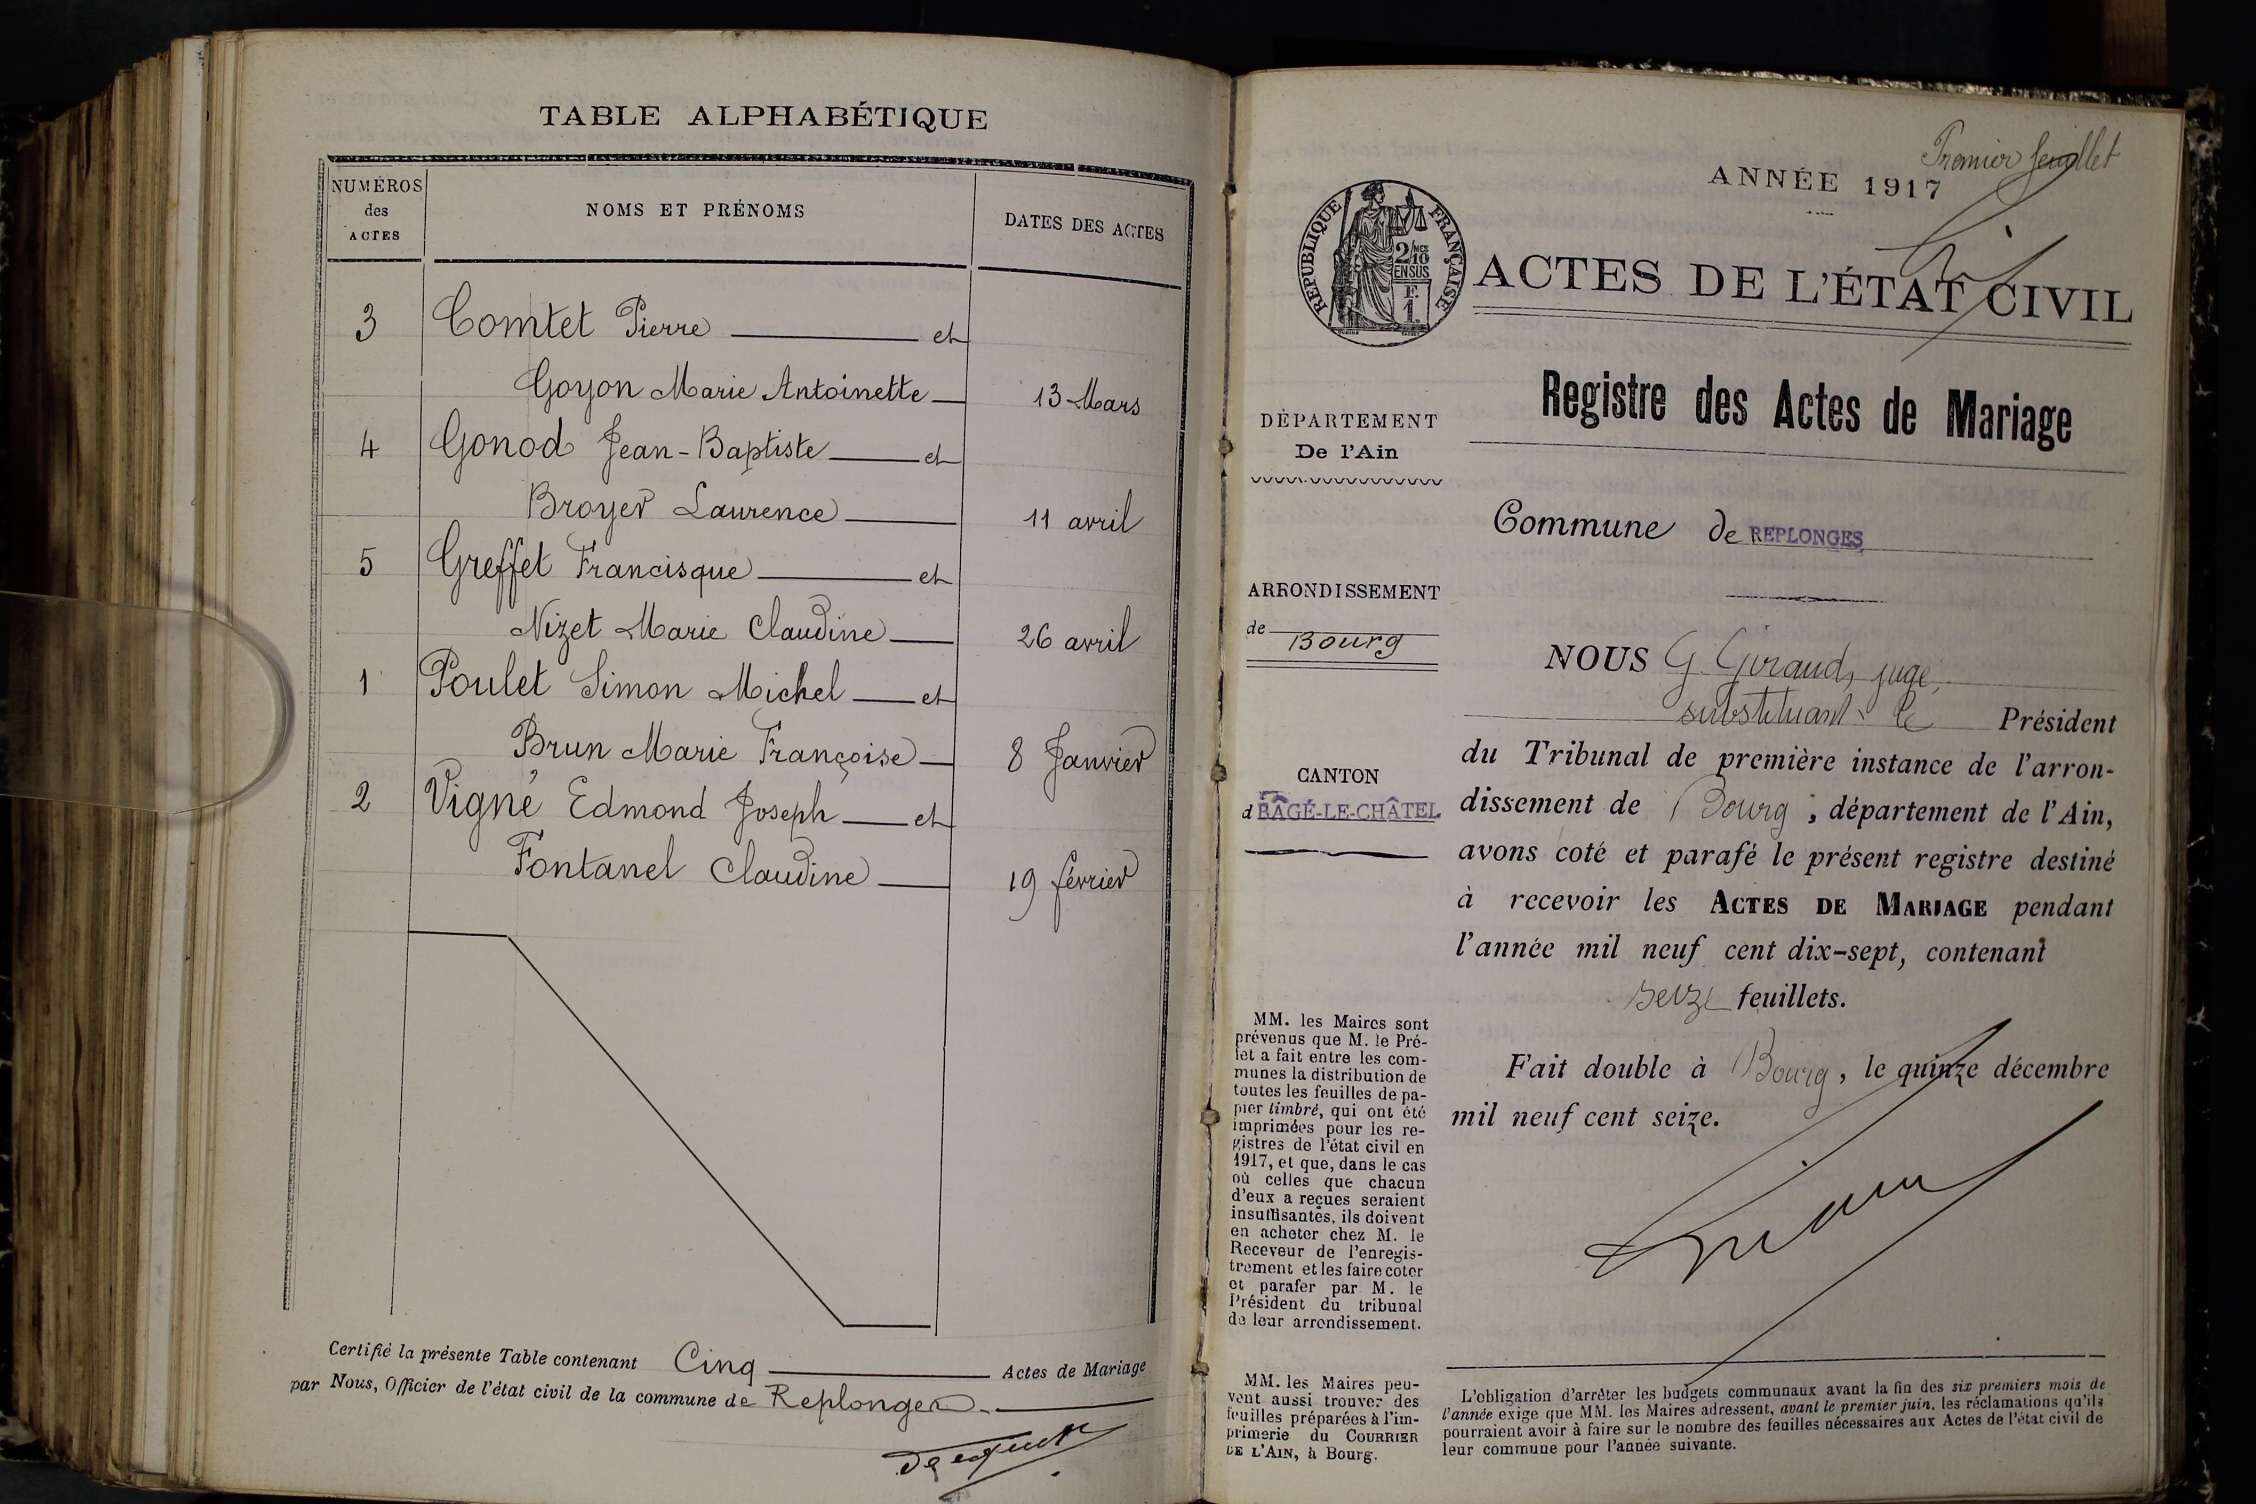 TABLE ALPHABÉTIQUE
NUMÉROS des ACTES
NOMS ET PRÉNOMS
DATES DES ACTES
3 Comtet Pierre et
Goyon Marie Antoinette 13 Mars
4 Gonod Jean-Baptiste et
Broyer Laurence 11 avril
5 Greffet Francisque et
Nizet Marie Claudine 26 avril
1 Poulet Simon Michel et
Brun Marie Françoise 8 Janvier
2 Vigné Edmond Joseph et
Fontanel Claudine 19 février
Certifié la présente Table contenant Cinq Actes de Mariage
par Nous, Officier de l'état civil de la commune de Replonges
Premier feuillet
ANNÉE 1917
RÉPUBLIQUE FRANÇAISE
2/10
EN SUS
F.
1.
ACTES DE L'ÉTAT CIVIL
Registre des Actes de Mariage
DÉPARTEMENT
De l'Ain
Commune de REPLONGES
ARRONDISSEMENT
de Bourg
CANTON
d BAGÉ-LE-CHÂTEL
NOUS G. Giraud, juge,
substituant le Président
du Tribunal de première instance de l'arron-
dissement de Bourg, département de l'Ain,
avons coté et parafé le présent registre destiné
à recevoir les ACTES DE MARIAGE pendant
l'année mil neuf cent dix-sept, contenant
seize feuillets.
Fait double à Bourg, le quinze décembre
mil neuf cent seize.
MM. les Maires sont
prévenus que M. le Pré-
fet a fait entre les com-
munes la distribution de
toutes les feuilles de pa-
pier timbré, qui ont été
imprimées pour les re-
gistres de l'état civil en
1917, et que, dans le cas
où celles que chacun
d'eux a reçues seraient
insuffisantes, ils doivent
en acheter chez M. le
Receveur de l'enregis-
trement et les faire coter
et parafer par M. le
Président du tribunal
de leur arrondissement.
MM. les Maires peu-
vent aussi trouver des
feuilles préparées à l'im-
primerie du COURRIER
DE L'AIN, à Bourg.
L'obligation d'arrêter les budgets communaux avant la fin des six premiers mois de
l'année exige que MM. les Maires adressent, avant le premier juin, les réclamations qu'ils
pourraient avoir à faire sur le nombre des feuilles nécessaires aux Actes de l'état civil de
leur commune pour l'année suivante.